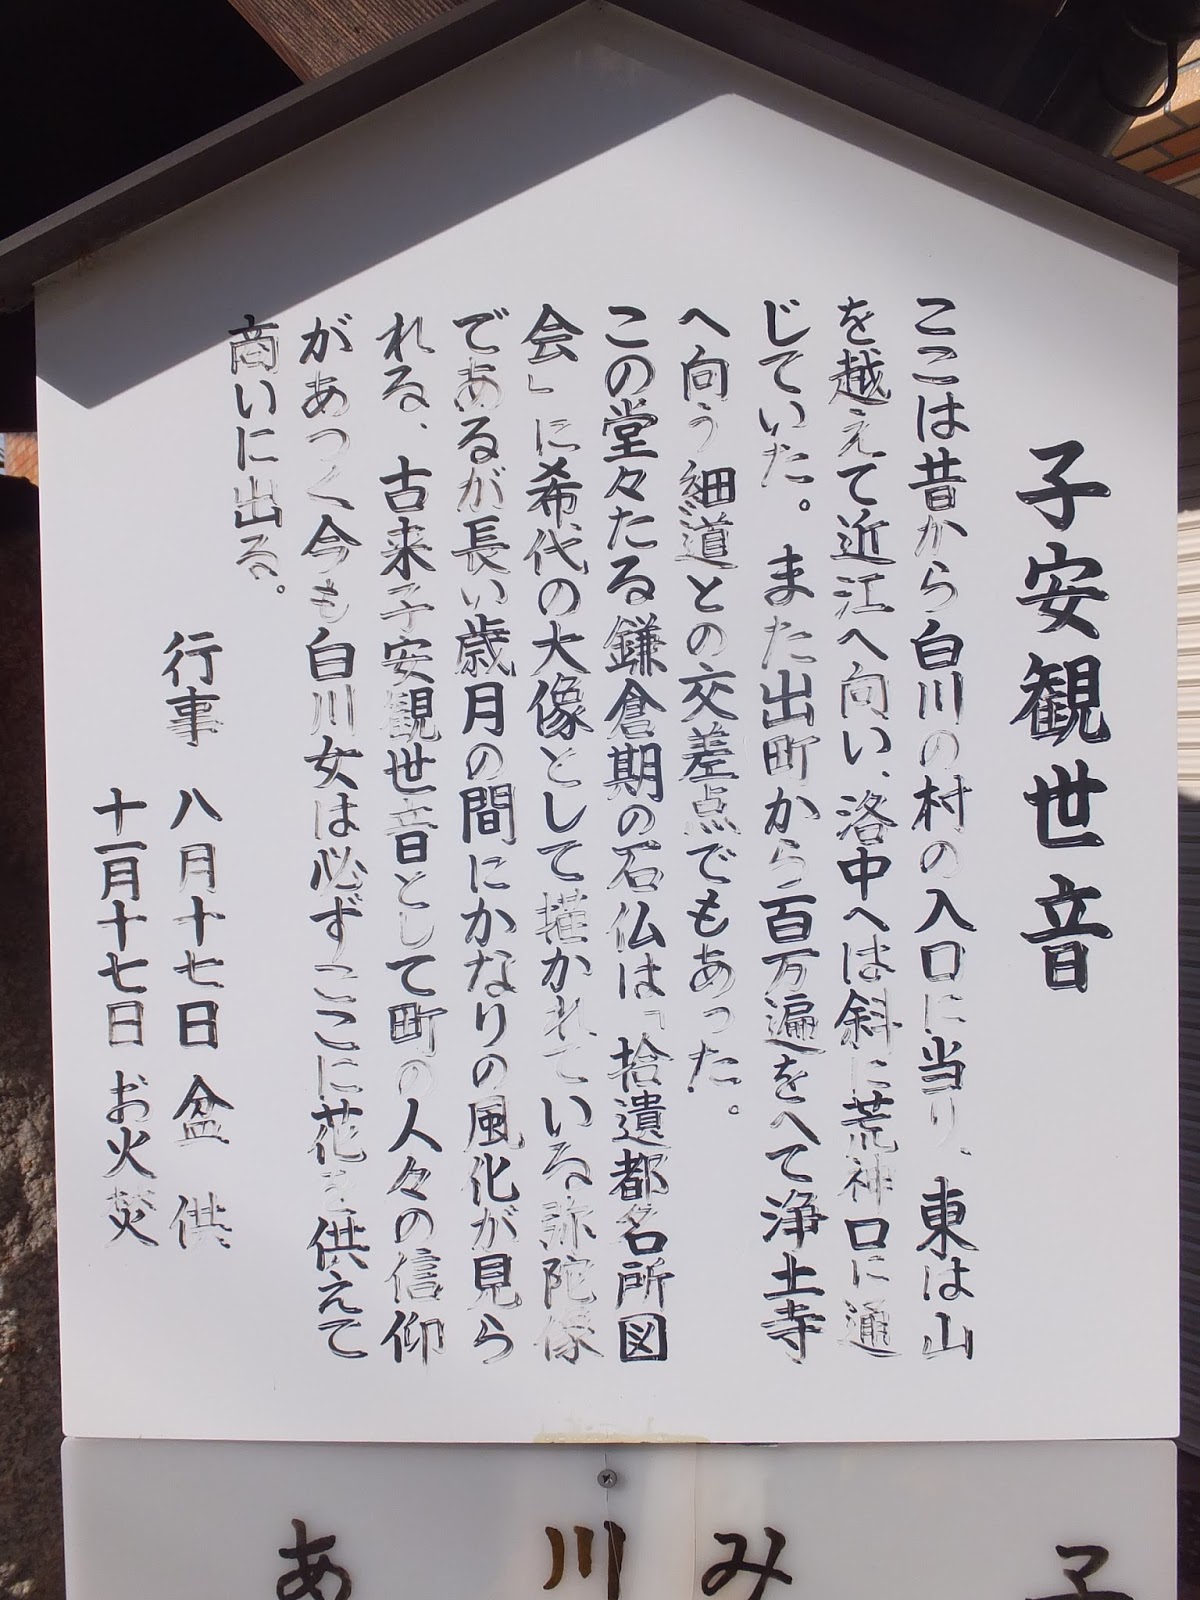 子安観世音
ここは昔から白川の村の入口に当り、東は山
を越えて近江へ向い、洛中へは斜に荒神口に通
じていた。また出町から百万遍をへて浄土寺
へ向う細道との交差点でもあった。
この堂々たる鎌倉期の石仏は「拾遺都名所図
会」に希代の大像として描かれている弥陀像
であるが長い歳月の間にかなりの風化が見ら
れる、古来子安観世音として町の人々の信仰
があつく今も白川女は必ずここに花を供えて
商いに出る。
行事 八月十七日 盆 供
十一月十七日 お火焚
子
み
川
あ